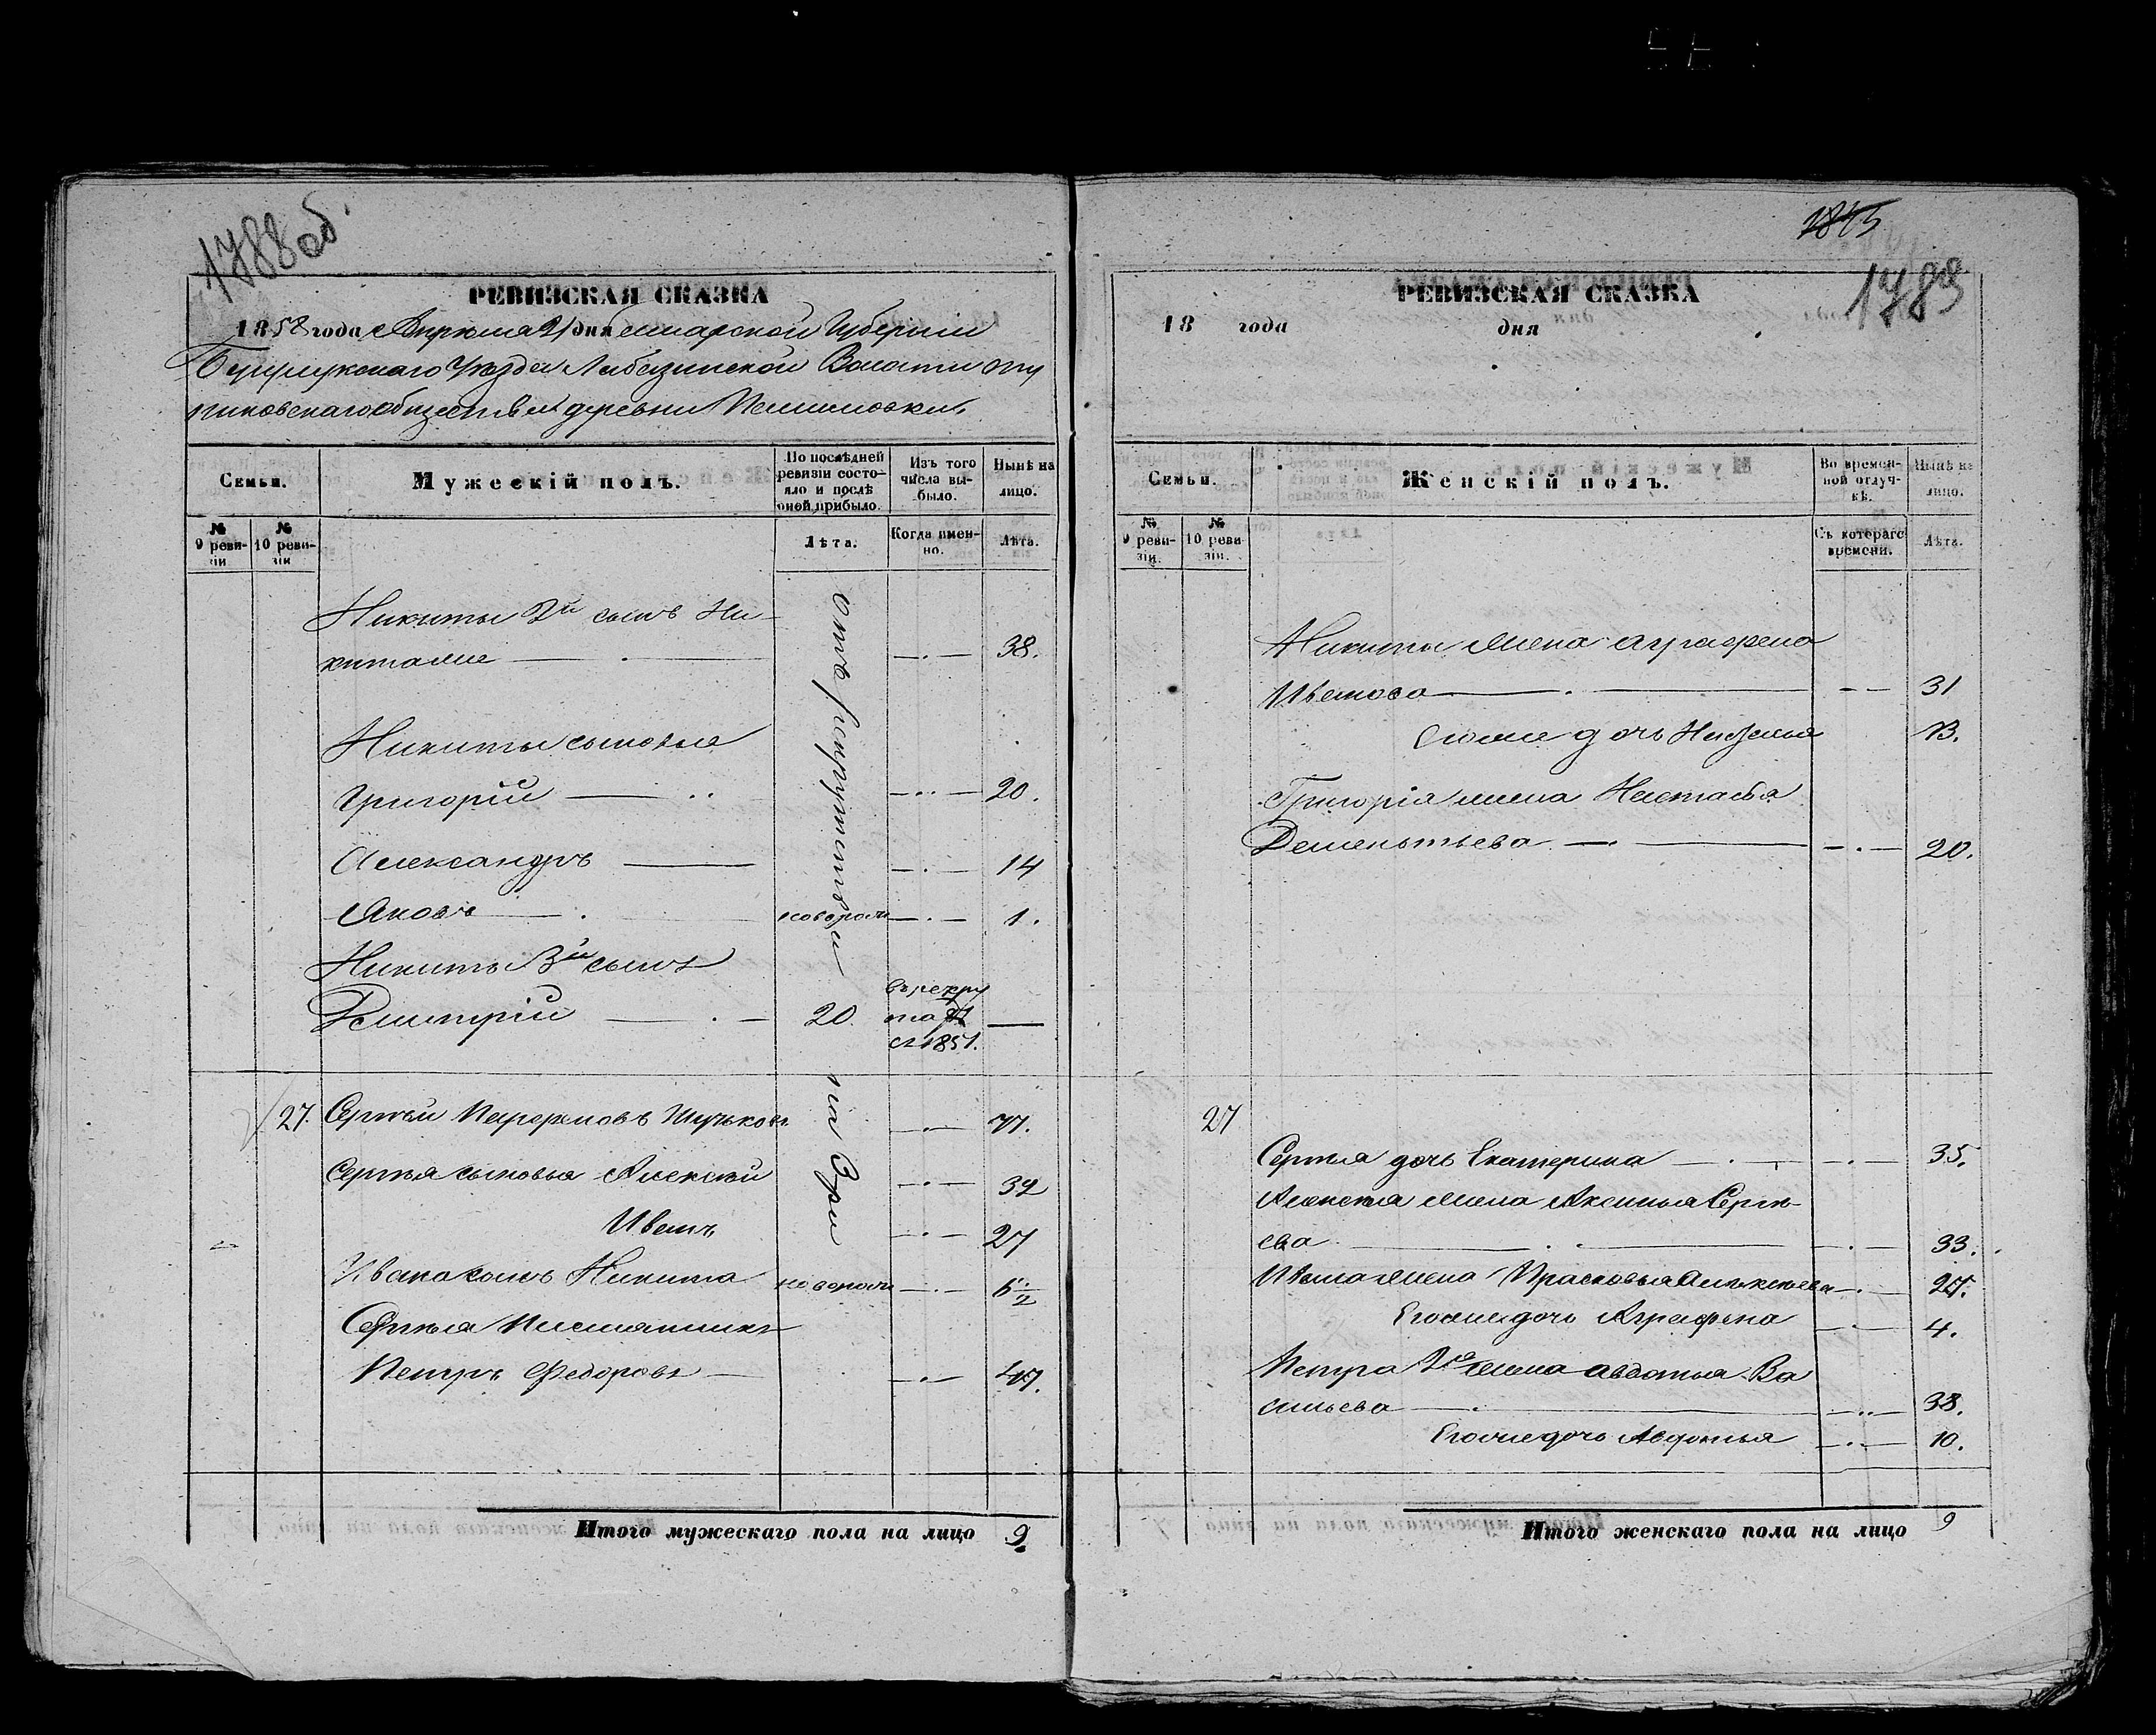 1788 об.
РЕВИЗСКАЯ СКАЗКА
1858 года Апреля 21 дня Самарской Губернии
Бузулукскаго Уезда Лабазинской Волости
общества деревни
Семьи.
Мужескій полъ.
По послѣдней ревизіи состояло и послѣ оной прибыло.
Изъ того числа выбыло.
Нынѣ на лицо.
№ 9 ревизіи
№ 10 ревизіи
Лѣта.
Когда именно.
Лѣта.
Никиты 2й сынъ Ни-
кита же — 38.
Никиты сыновья
Григорій — 20.
Александръ — 14
Яковъ — новорож — 1.
Никиты 3й сынъ
Дмитрій — 20. въ рекру
та
съ 1851.
27. Сергѣй Шучковъ — 77.
Сергѣя сыновья Алексѣй — 32
Иванъ — 27
Ивана сынъ Никита новорож — 6 1/2
Сергѣя Племянникъ
Петръ Федоровъ — 47.
Итого мужескаго пола на лицо 9
1845
1789
РЕВИЗСКАЯ СКАЗКА
18 года дня
Семьи.
Женскій полъ.
Во временной отлучкѣ.
Нынѣ на лицо.
№ 9 ревизіи.
№ 10 ревизіи.
Съ котораго времени.
Лѣта.
Никиты жена Аграфена
Иванова — 31
дочь 13.
Григорія жена Настасья
Дементьева — 20.
27
Сергѣя дочь Екатерина — 35.
Алексѣя жена Аксинья Сергѣ-
ева — 33.
Ивана жена Прасковья Алексѣева — 27.
Его же дочь Аграфена — 4.
Петра 2я жена Авдотья Ва
сильева — 38.
Его же дочь Авдотья — 10.
Итого женскаго пола на лицо 9